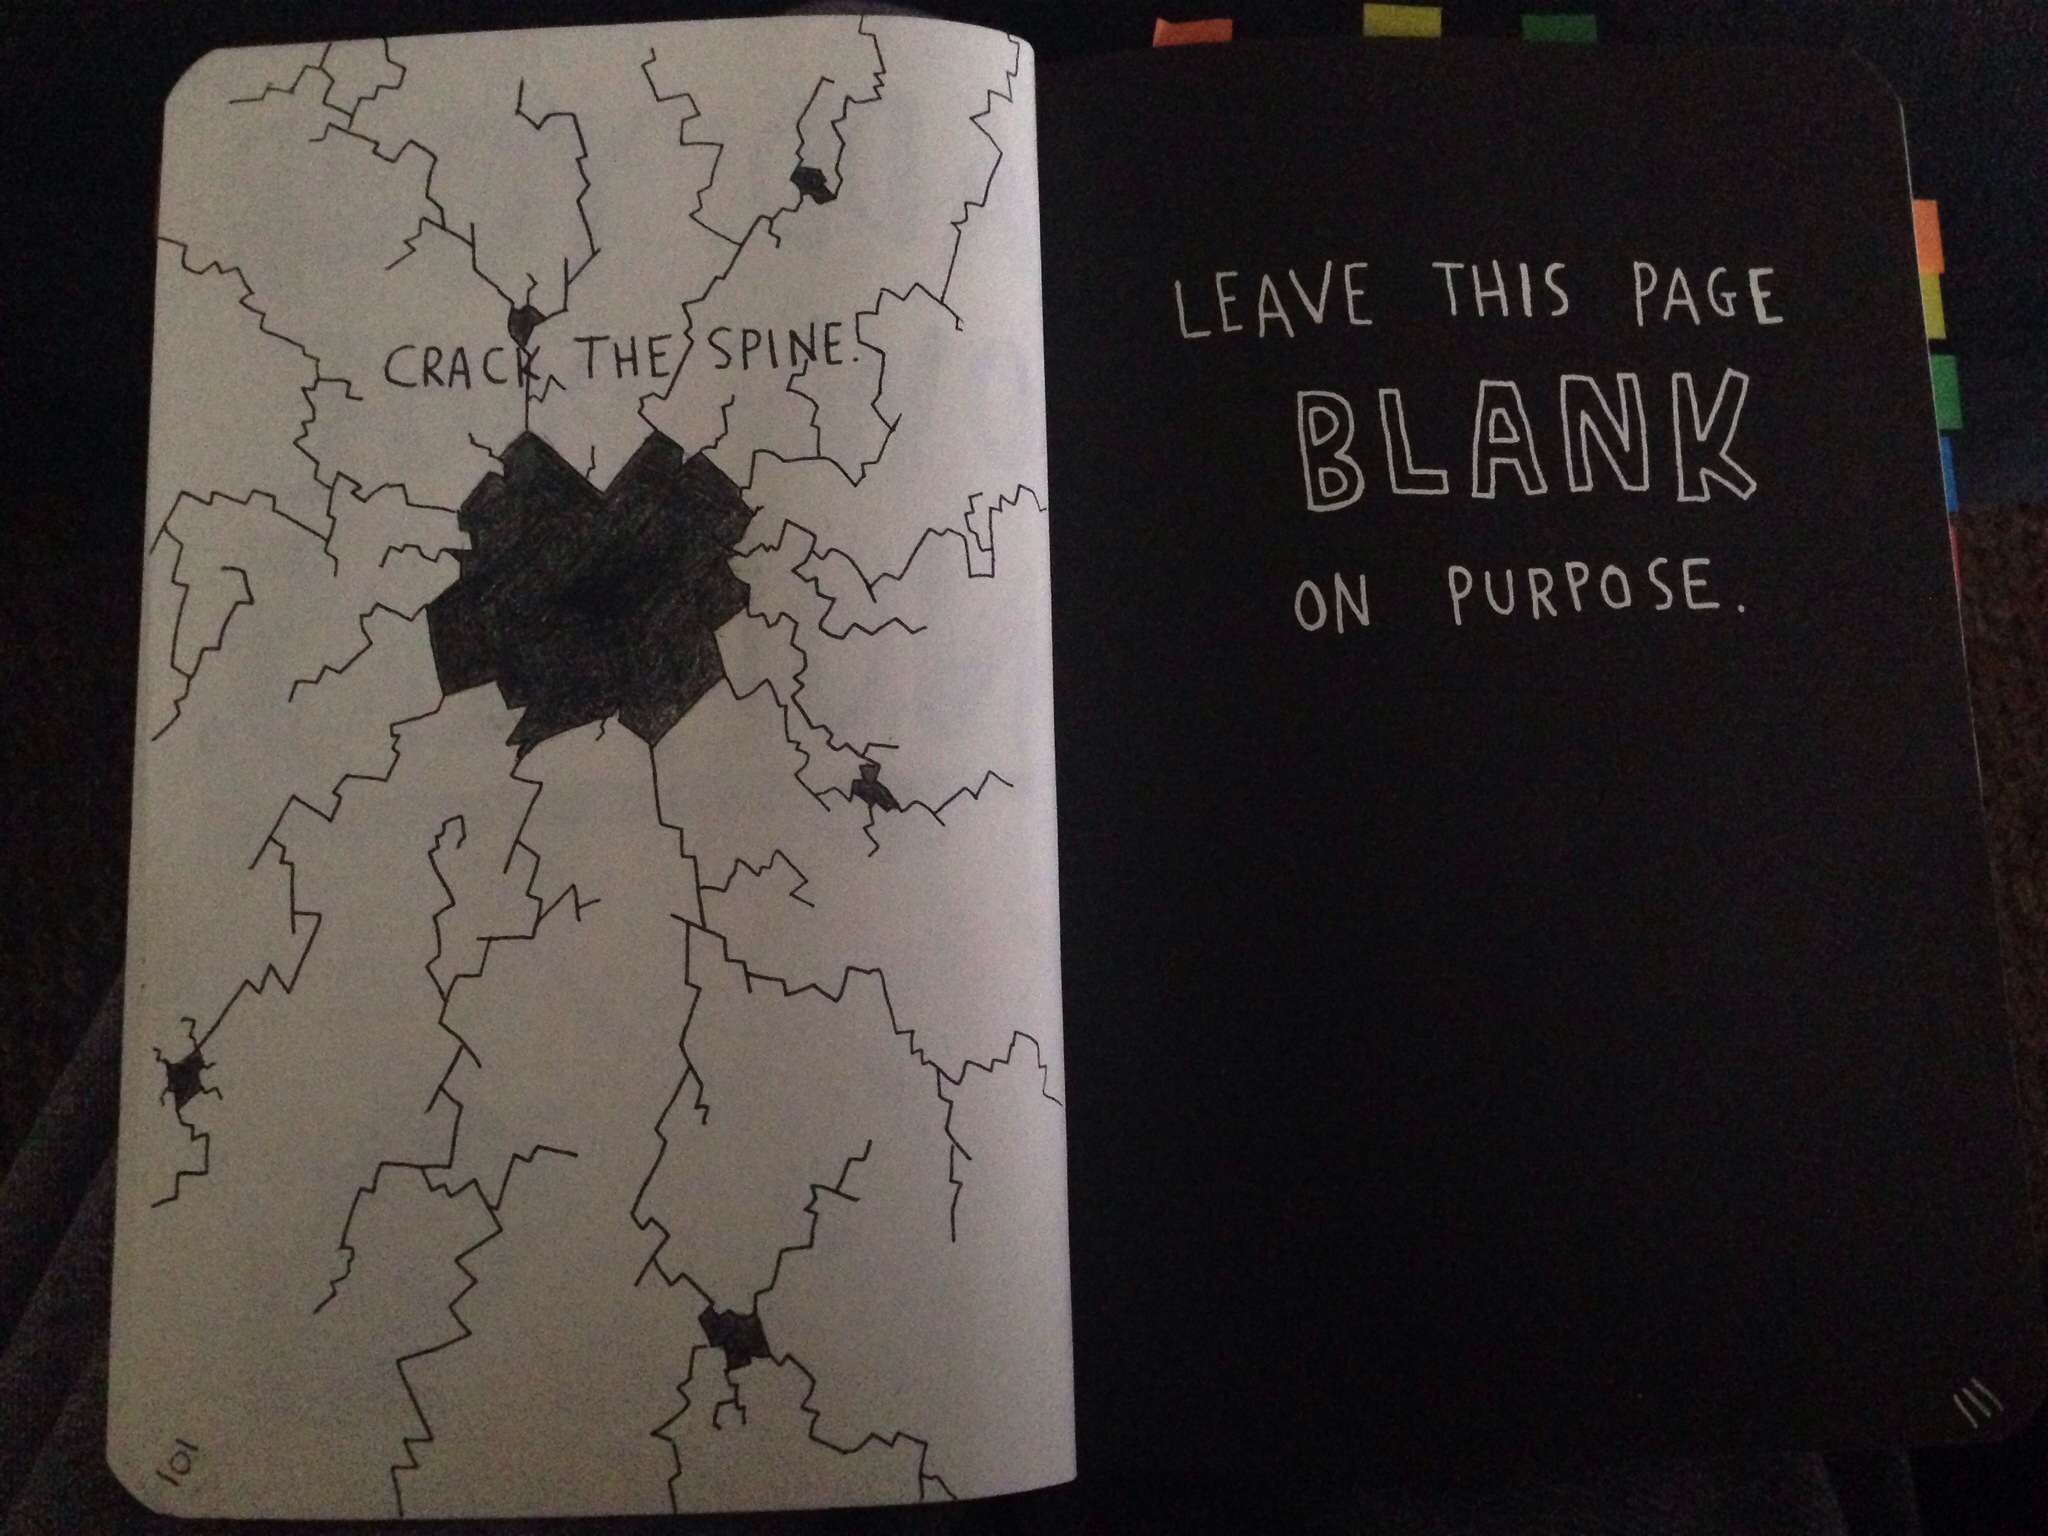 CRACK THE SPINE.
101
LEAVE THIS PAGE
BLANK
ON PURPOSE.
111